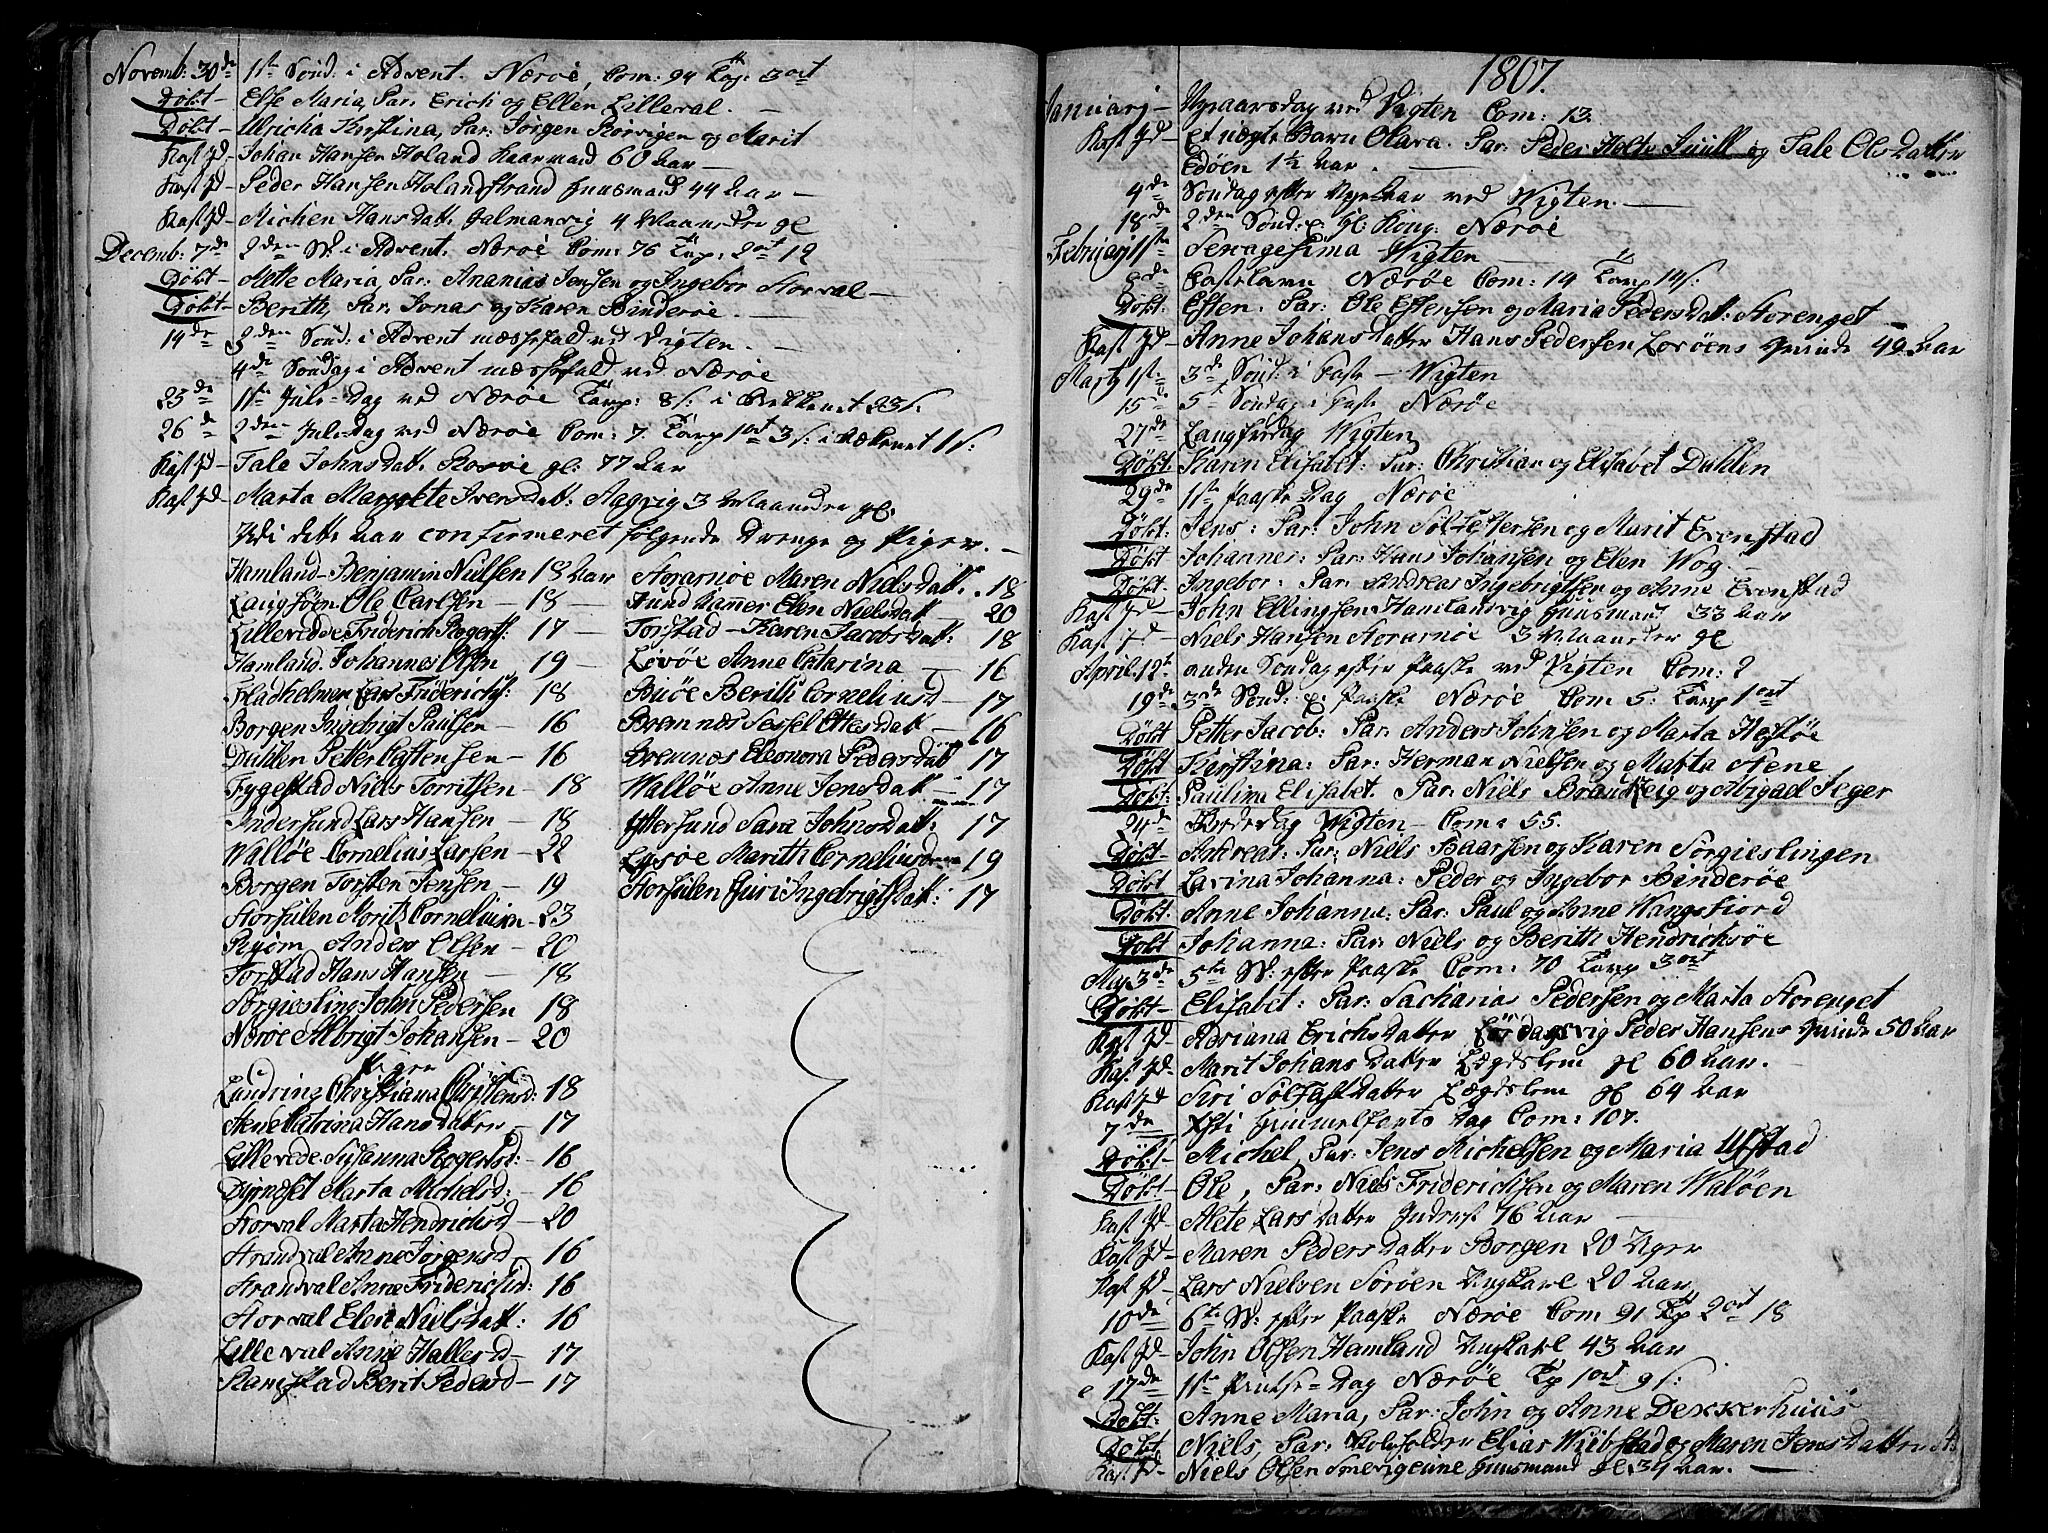 Novemb: 30de 1ste Sönd: i Advent. Næröe, Com: 94 Tavl: 3ort
Döbt – Else Maria, Par: Erich og Ellen Lilleval. –
Döbt – Ulricha Kirstina, Par: Jörgen Rörvigen og Marit
Kast Jd – Johan Hansen Holand Kaarmand 60 Aar –
Kast Jd – Peder Hansen Holandstrand Huusmand 44 Aar –
Kast Jd – Michen Hans Datt: Galmanvig 4 Maaneder gl
Decemb: 7de 2den S: i Advent. Næröe Com: 76 Tavl: 2ort 12
Döbt – Mette Maria, Par: Ananias Jensen og Ingebor Storval –
Döbt – Berith, Par: Jonas og Karen Binderöe. –
14de 3den Sönd: i Advent messefald ved Vigten. –
4de Söndag i Advent messefald ved Næröe
25de 1ste Jule-Dag ved Næröe Tavl: 8 s: i Bekkenet 23 s.
26de 2den Juledag ved Næröe Com: 7. Tavl 1ort 3 s: i Bekkenet 1 s:
Kast Jd – Tale Johns Datt: Rosöe gl: 77 Aar
Kast Jd – Marta Margrete Iversdatt: Aagvig 3 Maaneder gl.
I dette Aar confirmeret fölgende Drenge og Piger. –
Hamland – Benjamin Nielsen 18 Aar
Langsöen Ole Carlsen – 18 –
Lilleredde Friderich Rogerts: 17 –
Hamland. Johannes Olsen 19 –
Fladholmen Lars Friderichs: 18
Borgen Ingebrigt Paulsen – 16
Dahlen Petter Castensen – 16
Fygestad Niels Torritsen – 18
Indersund Lars Hansen – 18
Wallöe Cornelius Larsen – 22
Borgen Torsten Jensen – 19
Storsulen Morits Cornelius: – 23
Ryom Anders Olsen – 20
Torstad Hans Hansen – 18
Sörgiesling John Pedersen 18
Næröe Albrigt Johansen – 20
Piger
Lundring Christiana Christensd: 18
Catrina Hans Datter – 17
Lillerede Susanna Rogertsd: – 16
Marta Michelsd: – 16
Storval Marta Hendrichsd – 20
Strandval Anne Jörgensd – 16
Strandval Anne Friderichsd: 16
Storval Elen Niels Datt: 16
Lilleval Anne Hallesd – 17
Ramstad Berit Pedersd – 17
Storarnöe Maren Niels Datt: 18
Hund Kammer Elen Nielsdatt 20
Torstad – Karen Jacobs Datt: 18
Lövöe Anne Catarina – 16
Buöe Berith Corneliusd – 17
Bremnæs Sessel Ottes Datt – 16
Bremnæs Eleonora Peders Datt 17
Wallöe Anne Jens Datt – 17
Yttersund Sara Johns Datt: 17
Lysöe Marith Corneliusd 19
Storsulen Guri Ingebrigts Datt: 17
1807.
Januarj – Nyaarsdag ved Vigten Com: 13.
Kast Jd – Et uægte Barn Olava. Par: Peder Holte Juull og Tale Ols Datter
Edöen 1½ Aar. –
4de Söndag efter Nyetaar ved Wigten. –
18de 2den Sönd: e. Hl: Kong: Næröe
Februarj 1ste Sexagesima Wigten –
8de Fastelavn Næröe Com: 14 Tavl 14 s:
Döbt: Esten. Par: Ole Estensen og Maria Peders Dat: Storenget –
Kast Jd – Anne Johans Datter Hans Pedersen Lovöens Qvinde 49 Aar
Marty 1st: 3de Sönd: i Faste – Wigten
15de 5te Söndag i Faste Næröe
27de Langfredag Wigten
Döbt. Karen Elisabet: Par: Christian og Elisabet Dahlen
29de 1ste Paaske Dag Næröe
Döbt: Jens: Par: John Sölfestersen og Marit Evenstad
Döbt Johannes: Par: Hans Johansen og Elen Wog –
Döbt: Ingebor: Par: Andreas Ingebrigtsen og Anne Evenstad
Kast Jd – John Ellingsen Hamlandvig Huusmand 33 Aar
Kast Jd – Niels Hansen Storarnöe 3 Maaneder gl
April. 12te anden Söndag efter Paaske ved Vigten Com: 2
19de 3de Sönd: e: Paaske Næröe Com 5: Tavl 1ort
Döbt Petter Jacob: Par: Anders Johnsen og Marta Hestöe
Döbt Kierstina: Par: Herman Nielsen og Marta Stene
Döbt: Paulina Elisabet. Par: Niels Brandtzeig og Abigael Seger
24de Bededag Wigten – Com: 55.
Döbt – Andreas: Par: Niels Baarsen og Karen Sörgieslingen
Döbt Lavina Johanna: Peder og Ingebor Binderöe
Döbt. Anne Johanna: Par: Paul og Anne Wangsfiord
Döbt Johanna: Par: Niels og Berith Hendrichsöe
Maj 3de 5te S: efter Paaske Com: 70 Tavl 3ort
Döbt – Elisabet: Par: Sacharias Pedersen og Marta Storenget
Kast Jd Adriana Erichs Datter Lördagsvig Peder Hansens Qvinde 50 Aar
Kast Jd. Marit Johans Datter Lægdslem gl 60 Aar. –
Kast Jd Siri Solfast Datter Lægdslem gl 64 Aar
7de Christi Himmelfarts Dag Com: 107.
Döbt – Michel, Par: Jens Michelsen og Maria Ufstad
Döbt – Ole, Par: Niels Friderichsen og Maren Walöen
Kast Jd – Mete Lars Datter Indrest 76 Aar –
Kast Jd – Maren Peders Datter Borgen 20 Uger
Kast Jd – Lars Nielsen Soröen Ungkarl 20 Aar
10de 6te S: efter Paaske Næröe Com 91 Tvl 2ort 18
Kast Jd – John Olsen Hamland Ungkarl 43 Aar
17de 1ste Pintse-Dag Næröe Tvl 1ort 9 s:
Döbt: Anne Maria, Par: John og Anne Dekkerhuus
Döbt Niels, Par: Elias Wiibstad og Maren Jens Datter
Kast Jd – Niels Olsen Smevigeine Huusmand gl 34 Aar. –